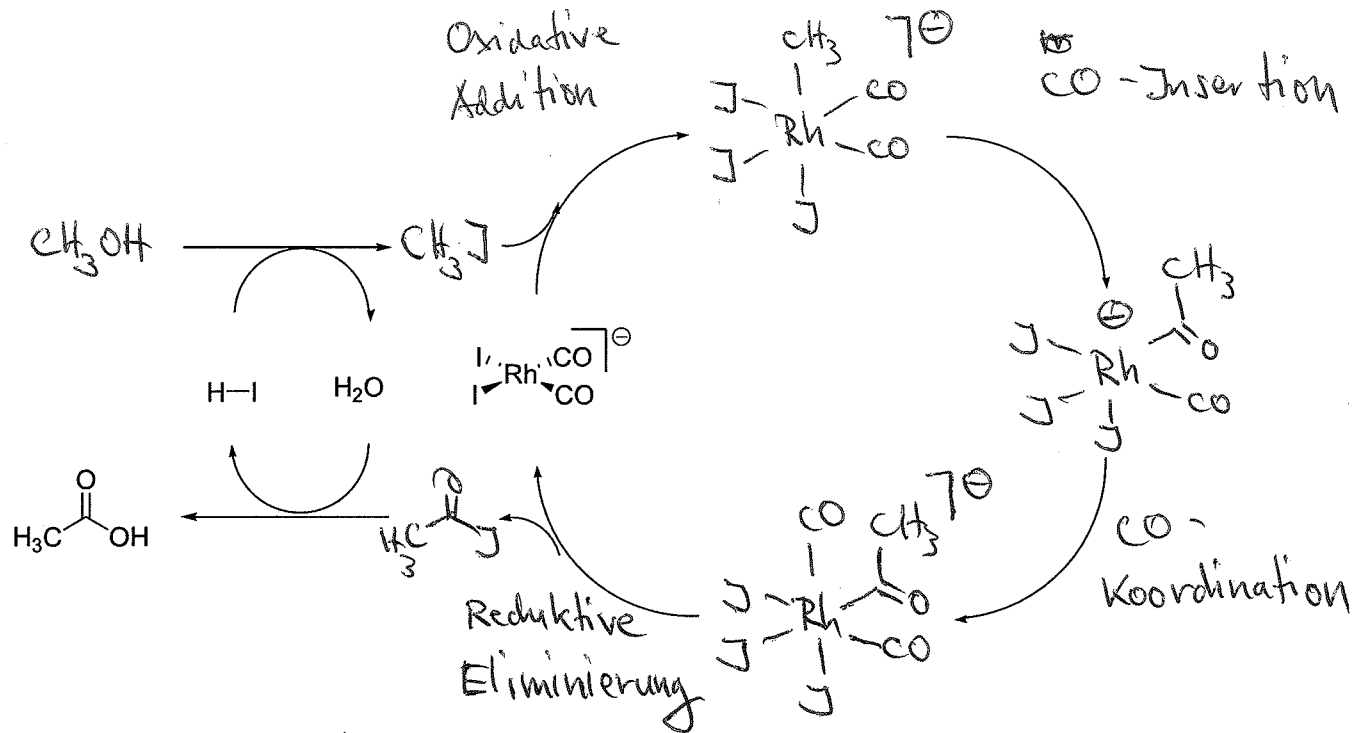 Oxidative
Addition
CH₃ ]⊖
J CO
Rh
J CO
J
CO-Insertion
CH₃OH
CH₃J
H—I
H₂O
I CO ]⊖
Rh
I CO
CH₃
⊖
J O
Rh
J CO
J
O
H₃C OH
O
H₃C J
Reduktive
Eliminierung
CO CH₃ ]⊖
J O
Rh
J CO
J
CO-
Koordination